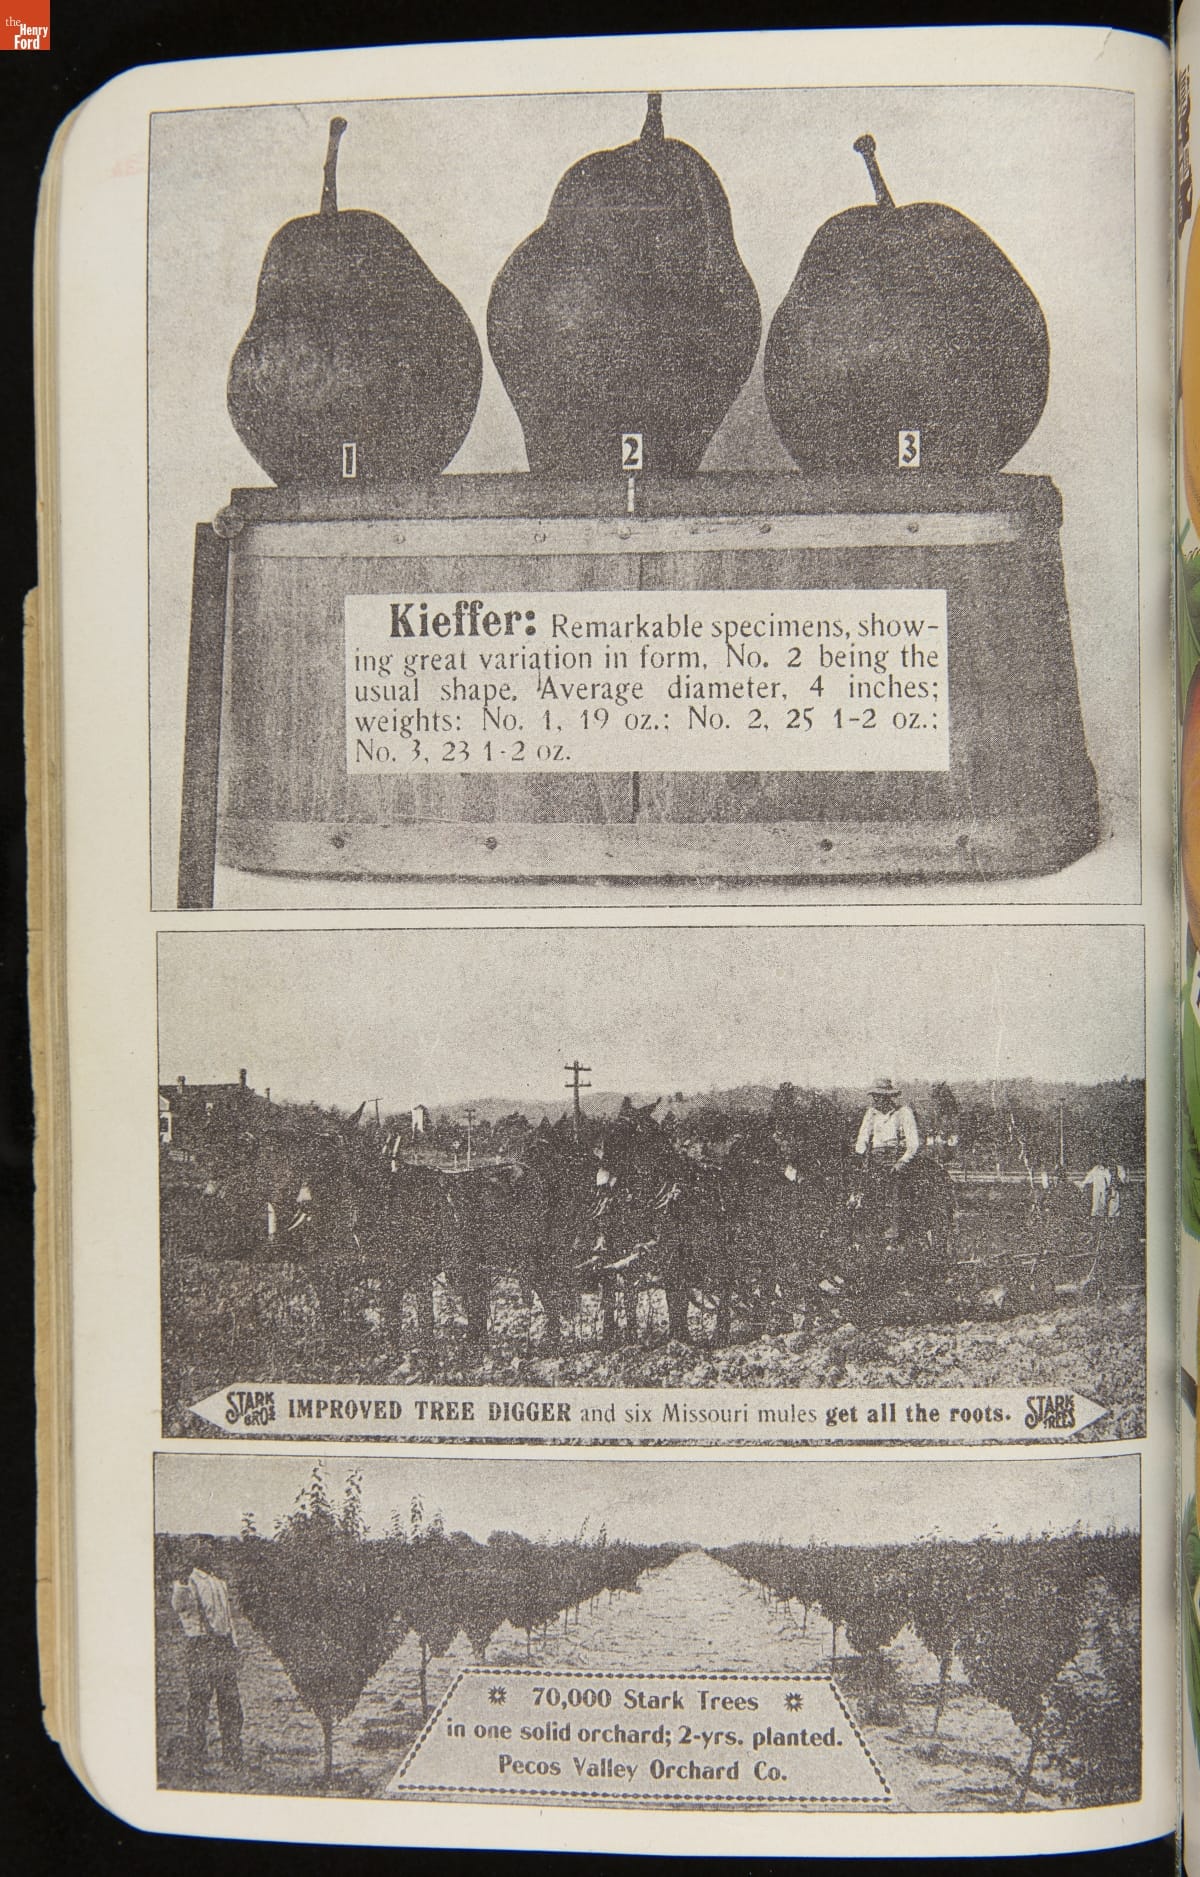 the
Henry
Ford
1
2
3
Kieffer: Remarkable specimens, show-
ing great variation in form, No. 2 being the
usual shape. Average diameter, 4 inches;
weights: No. 1, 19 oz.; No. 2, 25 1-2 oz.;
No. 3, 23 1-2 oz.
STARK BRO'S IMPROVED TREE DIGGER and six Missouri mules get all the roots. STARK TREES
70,000 Stark Trees
in one solid orchard; 2-yrs. planted.
Pecos Valley Orchard Co.